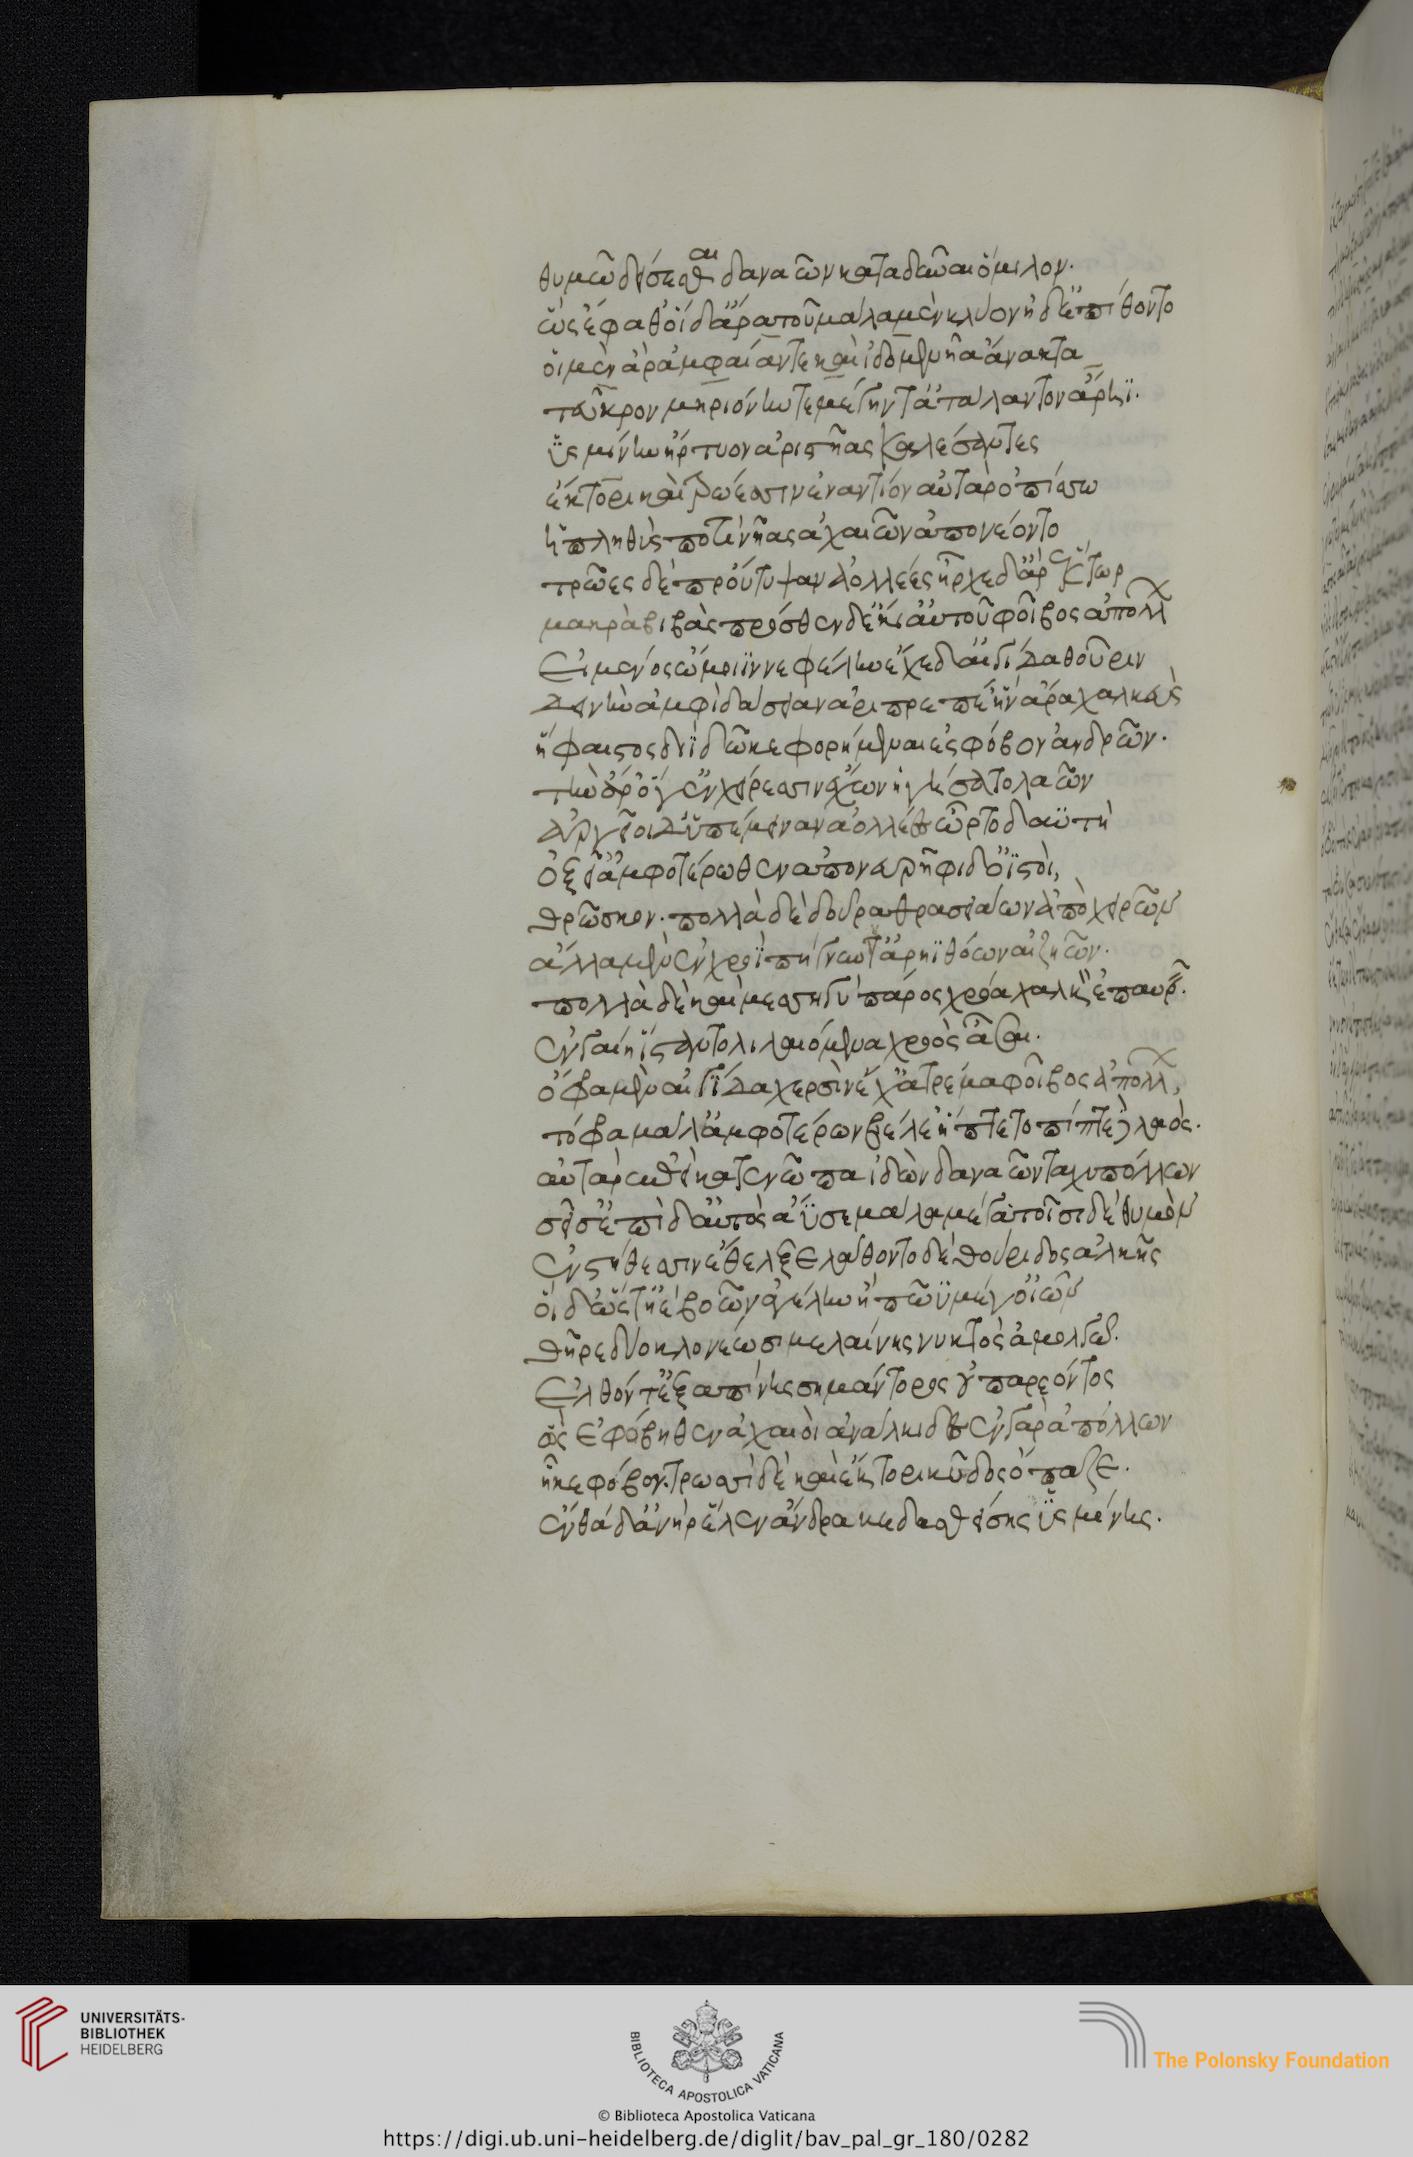 θυμῶ δείσεσθαι δαναῶν καταδῦναι ὅμιλον.
ὣς ἔφαθ' οἵ δ' ἄρα τοῦ μάλα μὲν κλύον ἠδ' ἐπίθοντο
οἱ μὲν ἄρ' ἀμφ' αἴαντε καὶ ἰδομενῆα ἄνακτα
τεῦκρον μηριόνην τε μέγην τ' ἀτάλαντον ἄρηϊ.
ὑσμίνην ἤρτυον ἀριστῆας καλέσαντες
ἕκτορι καὶ τρώεσσιν ἐναντίον αὐτὰρ ὀπίσσω
ἡ πληθὺς ποτὶ νῆας ἀχαιῶν ἀπονέοντο
τρῶες δὲ προὔτυψαν ἀολλέες ἦρχε δ' ἄρ' ἕκτωρ
μακρὰ βιβὰς πρόσθεν δὲ κί' αὐτοῦ φοῖβος ἀπόλλων
εἱμένος ὤμοιϊν νεφέλην ἔχε δ' αἰγίδα θοῦριν
δεινὴν ἀμφιδάσειαν ἀριπρεπέ' ἣν ἄρα χαλκεὺς
ἥφαιστος διῒ δῶκε φορήμεναι ἐς φόβον ἀνδρῶν.
τὴν ἄρ' ὅγ' ἐν χείρεσσιν ἔχων ἡγήσατο λαῶν
ἀργεῖοι δ' ὑπέμειναν ἀολλέες ὦρτο δ' αϋτὴ
ὀξεῖ' ἀμφοτέρωθεν απο νευρῆφι δ' ὀϊστοὶ,
θρῶσκον. πολλὰ δὲ δοῦρα θρασειάων ἀπὸ χειρῶν
ἄλλα μὲν ἐν χροῒ πήγνυτ' ἀρηϊθόων αἰζηῶν.
πολλὰ δὲ καὶ μεσσηγὺ πάρος χρόα ἐπαυρεῖν.
ἐν γαίη ἵσταντο λιλαιόμενα χροὸς ἆσαι.
ὄφρα μὲν αἰγίδα χερσὶν ἔχ' ἀτρέμα φοῖβος ἀπόλλων,
τόφρα μάλ' ἀμφοτέρων βέλε' ἥπτετο πίπτε δὲ λαός.
αὐτὰρ ἐπεὶ κατενῶπα ἰδὼν δαναῶν ταχυπόλων
σεῖσ' ἐπὶ δ' αὐτὸς ἄϋσε μάλα μέγα τοῖσι δὲ θυμὸν
ἐν στήθεσσιν ἔθελξε λάθοντο δὲ θούριδος ἀλκῆς
οἱ δ' ὥστ' ἠὲ βοῶν ἀγέλην ἢ πῶϋ μέγ' οἰῶν
θῆρε δύο κλονέωσι μελαίνης νυκτὸς ἀμολγῶ.
ἐλθόντ' ἐξαπίνης σημάντορος οὐ παρεόντος
ὣς ἐφόβηθεν ἀχαιοὶ ἀνάλκιδες ἐν γὰρ ἀπόλλων
ἧκε φόβον. τρωσὶ δὲ καὶ ἕκτορι κῦδος ὄπαζε.
ἔνθα δ' ἀνὴρ ἕλεν ἄνδρα κεδασθείσης ὑσμίνης.
UNIVERSITÄTS-
BIBLIOTHEK
HEIDELBERG
BIBLIOTECA APOSTOLICA VATICANA
The Polonsky Foundation
© Biblioteca Apostolica Vaticana
https://digi.ub.uni-heidelberg.de/diglit/bav_pal_gr_180/0282